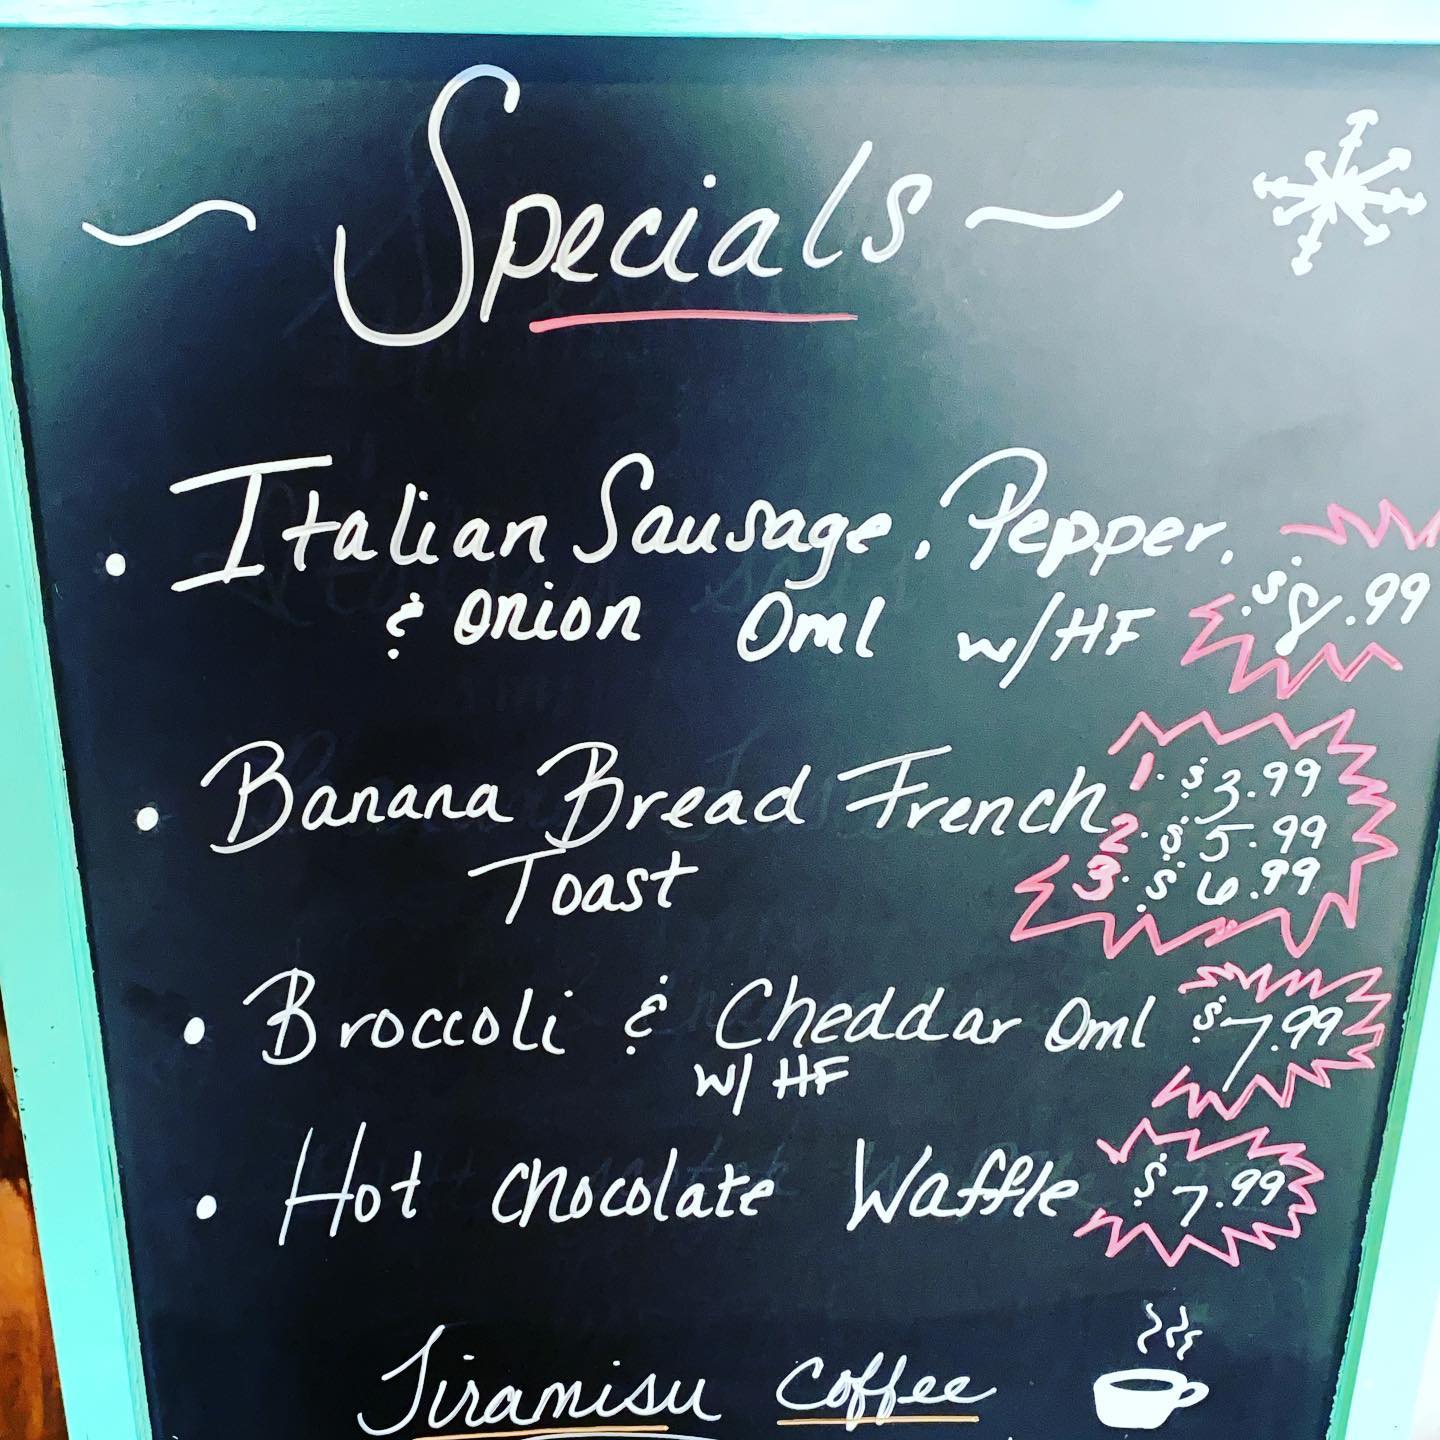 ~ Specials ~
• Italian Sausage, Pepper,
& Onion Oml w/HF $8.99
• Banana Bread French 1. $3.99
2. $5.99
Toast 3. $6.99
• Broccoli & Cheddar Oml $7.99
w/ HF
• Hot Chocolate Waffle $7.99
Tiramisu Coffee